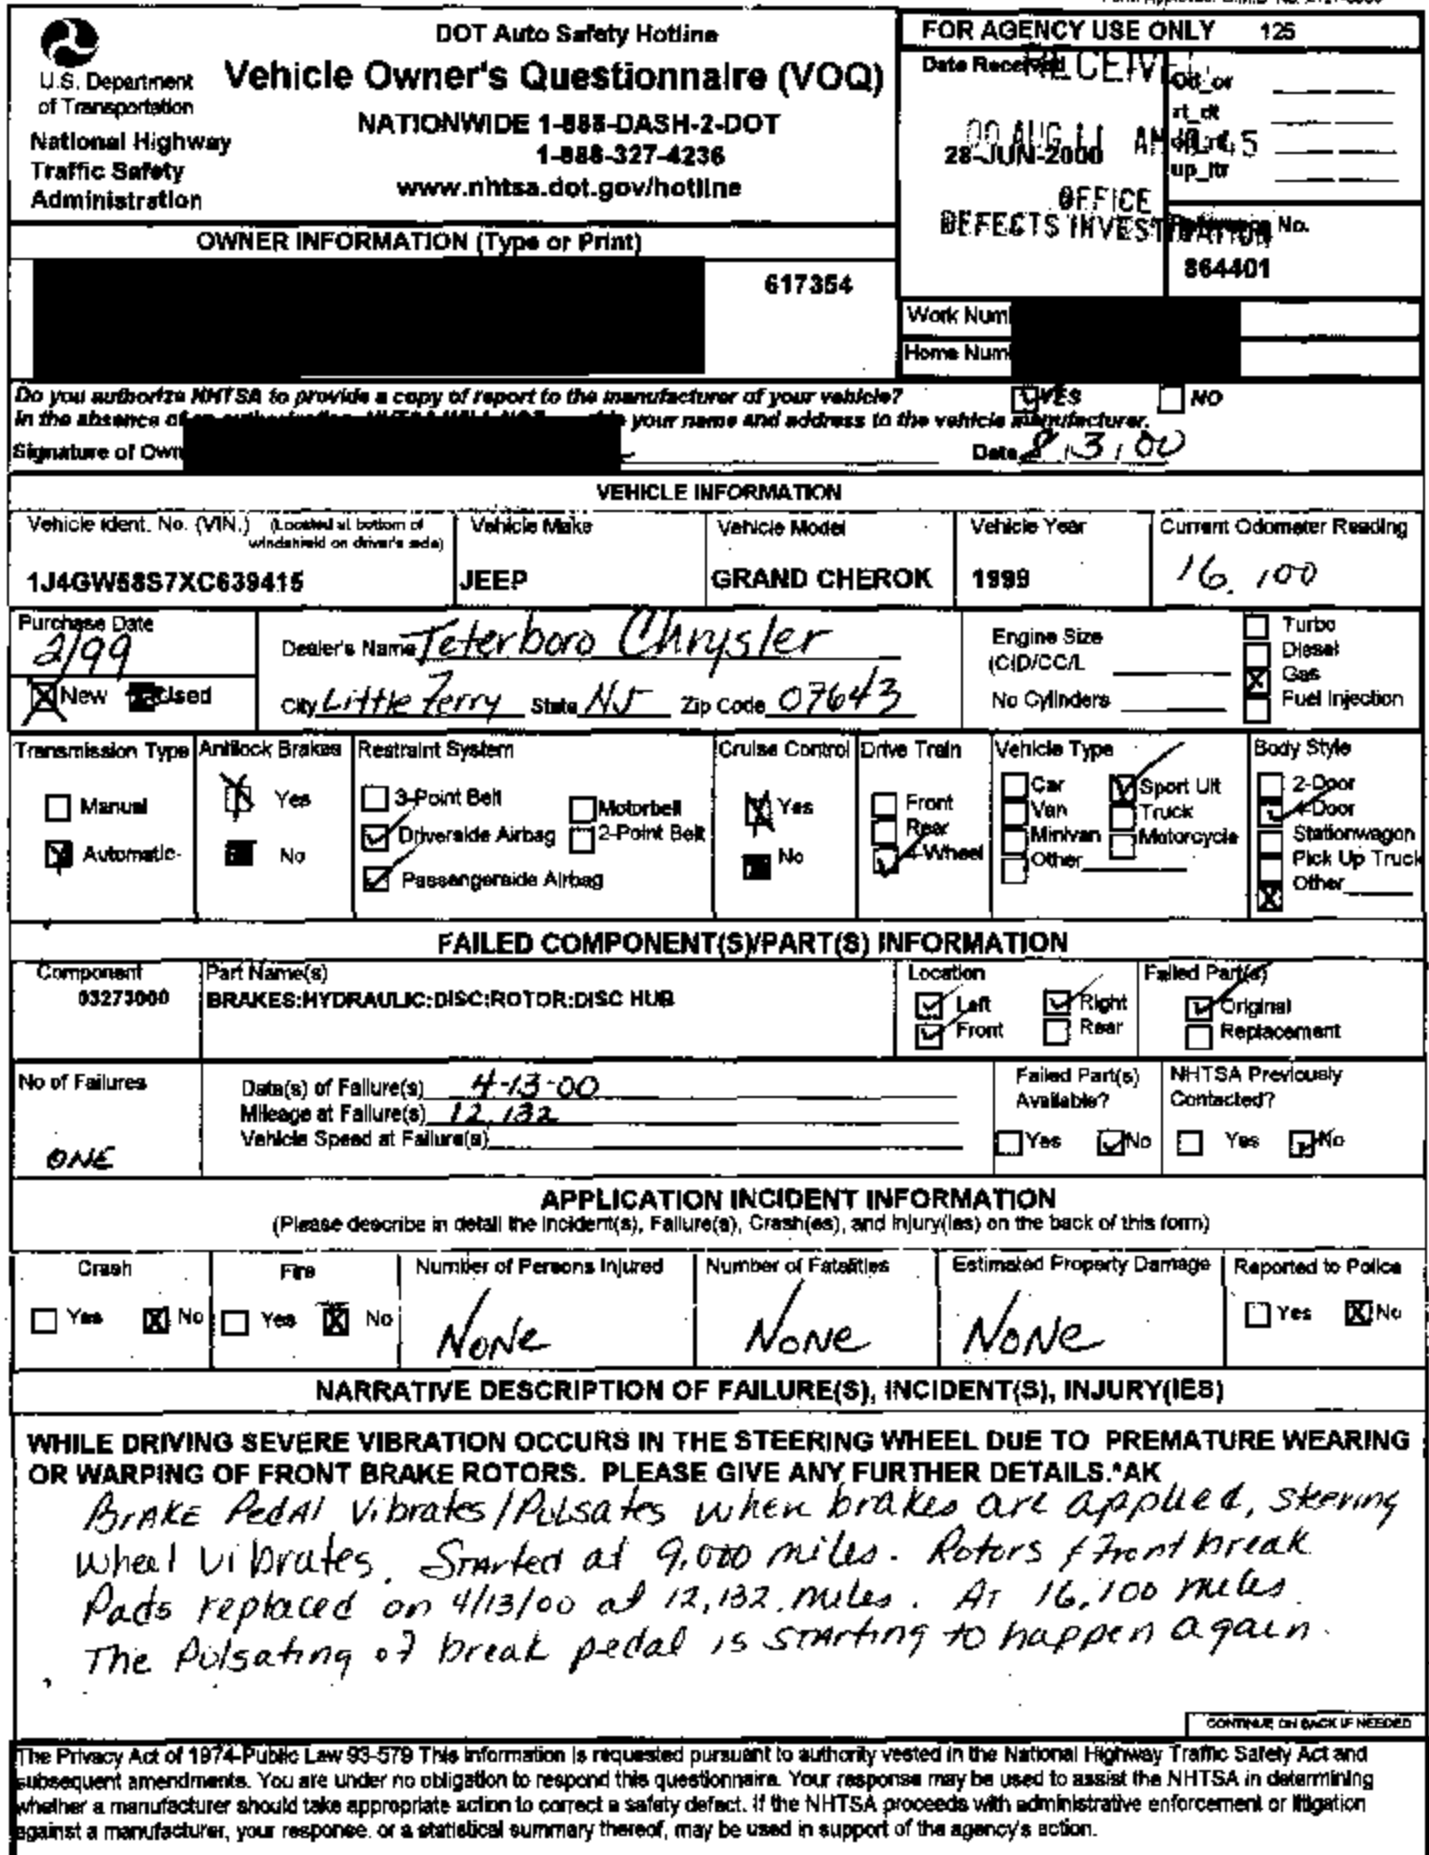 DOT Auto Safety Hotline
Vehicle Owner's Questionnaire (VOQ)
NATIONWIDE 1-888-DASH-2-DOT
1-888-327-4236
www.nhtsa.dot.gov/hotline
U.S. Department
of Transportation
National Highway
Traffic Safety
Administration
FOR AGENCY USE ONLY 125
Date Received
28-JUN-2000
OFFICE
DEFECTS INVESTIGATION
rt_dt
up_ltr
Reference No.
864401
OWNER INFORMATION (Type or Print)
617354
Work Num
Home Num
Do you authorize NHTSA to provide a copy of report to the manufacturer of your vehicle? YES NO
In the absence of your name and address to the vehicle manufacturer.
Signature of Own Date 8/3/00
VEHICLE INFORMATION
Vehicle Ident. No. (VIN.) (Located at bottom of windshield on driver's side)
1J4GW58S7XC639415
Vehicle Make
JEEP
Vehicle Model
GRAND CHEROK
Vehicle Year
1999
Current Odometer Reading
16,100
Purchase Date
2/99
New Used
Dealer's Name Teterboro Chrysler
City Little Ferry State NJ Zip Code 07643
Engine Size
(CID/CC/L
No Cylinders
Turbo
Diesel
Gas
Fuel Injection
Transmission Type
Manual
Automatic
Antilock Brakes
Yes
No
Restraint System
3-Point Belt
Motorbelt
Driverside Airbag
2-Point Belt
Passengerside Airbag
Cruise Control
Yes
No
Drive Train
Front
Rear
4-Wheel
Vehicle Type
Car
Van
Minivan
Other
Sport Ult
Truck
Motorcycle
Body Style
2-Door
4-Door
Stationwagon
Pick Up Truck
Other
FAILED COMPONENT(S)/PART(S) INFORMATION
Component
03273000
Part Name(s)
BRAKES:HYDRAULIC:DISC:ROTOR:DISC HUB
Location
Left Right
Front Rear
Failed Part(s)
Original
Replacement
No of Failures
ONE
Date(s) of Failure(s) 4-13-00
Mileage at Failure(s) 12,132
Vehicle Speed at Failure(s)
Failed Part(s)
Available?
Yes No
NHTSA Previously
Contacted?
Yes No
APPLICATION INCIDENT INFORMATION
(Please describe in detail the Incident(s), Failure(s), Crash(es), and Injury(ies) on the back of this form)
Crash
Yes No
Fire
Yes No
Number of Persons Injured
NONE
Number of Fatalities
NONE
Estimated Property Damage
NONE
Reported to Police
Yes No
NARRATIVE DESCRIPTION OF FAILURE(S), INCIDENT(S), INJURY(IES)
WHILE DRIVING SEVERE VIBRATION OCCURS IN THE STEERING WHEEL DUE TO PREMATURE WEARING
OR WARPING OF FRONT BRAKE ROTORS. PLEASE GIVE ANY FURTHER DETAILS.*AK
BRAKE Pedal Vibrates/Pulsates when brakes are applied, steering
wheel vibrates. Started at 9,000 miles. Rotors & Front break
Pads replaced on 4/13/00 at 12,132 miles. At 16,100 miles
The Pulsating of break pedal is starting to happen again.
CONTINUE ON BACK IF NEEDED
The Privacy Act of 1974-Public Law 93-579 This information is requested pursuant to authority vested in the National Highway Traffic Safety Act and
subsequent amendments. You are under no obligation to respond this questionnaire. Your response may be used to assist the NHTSA in determining
whether a manufacturer should take appropriate action to correct a safety defect. If the NHTSA proceeds with administrative enforcement or litigation
against a manufacturer, your response, or a statistical summary thereof, may be used in support of the agency's action.